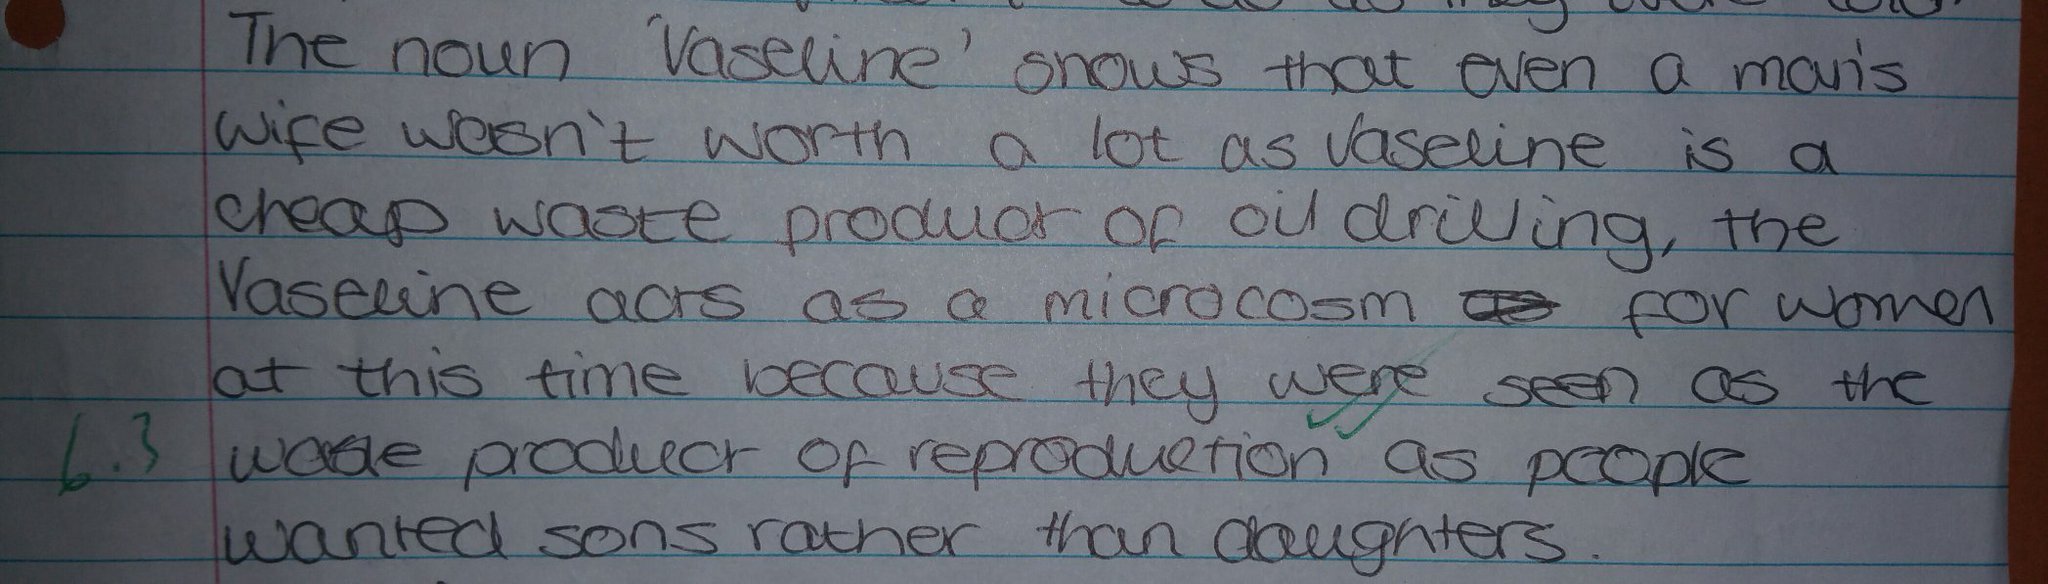 The noun 'Vaseline' shows that even a man's
wife wasn't worth a lot as Vaseline is a
cheap waste product of oil drilling, the
Vaseline acts as a microcosm for women
at this time because they were seen as the
6.3 waste product of reproduction as people
wanted sons rather than daughters.